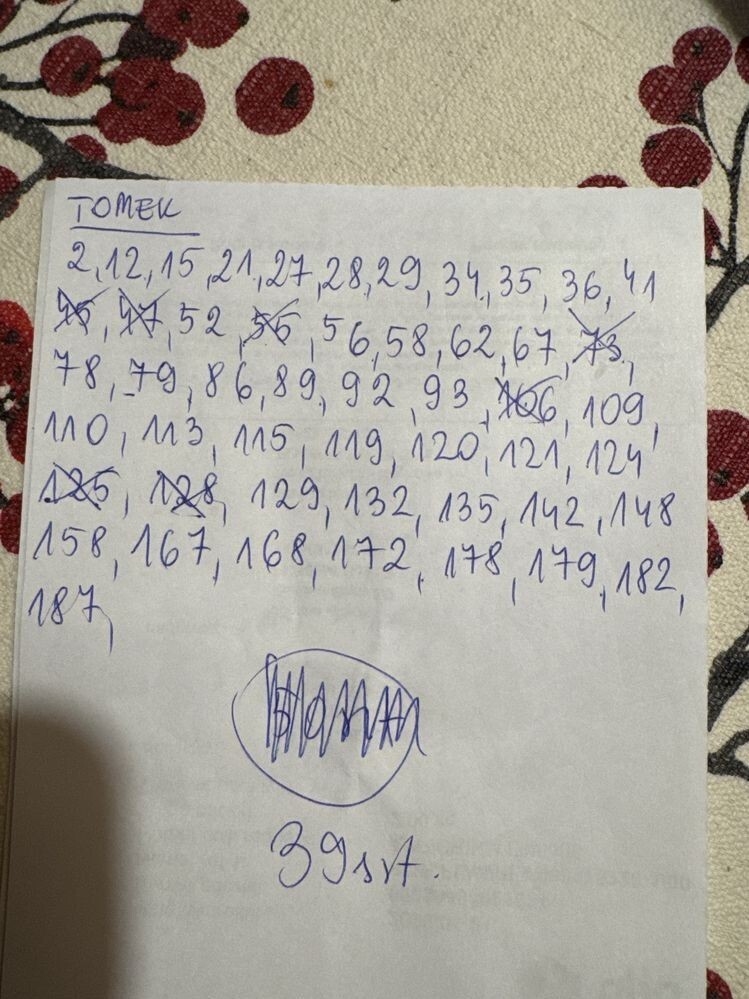 TOMEK
2, 12, 15, 21, 27, 28, 29, 34, 35, 36, 41
45, 47, 52, 55, 56, 58, 62, 67, 73,
78, 79, 86, 89, 92, 93, 106, 109,
110, 113, 115, 119, 120, 121, 124
125, 128, 129, 132, 135, 142, 148
158, 167, 168, 172, 178, 179, 182,
187,
39szt.